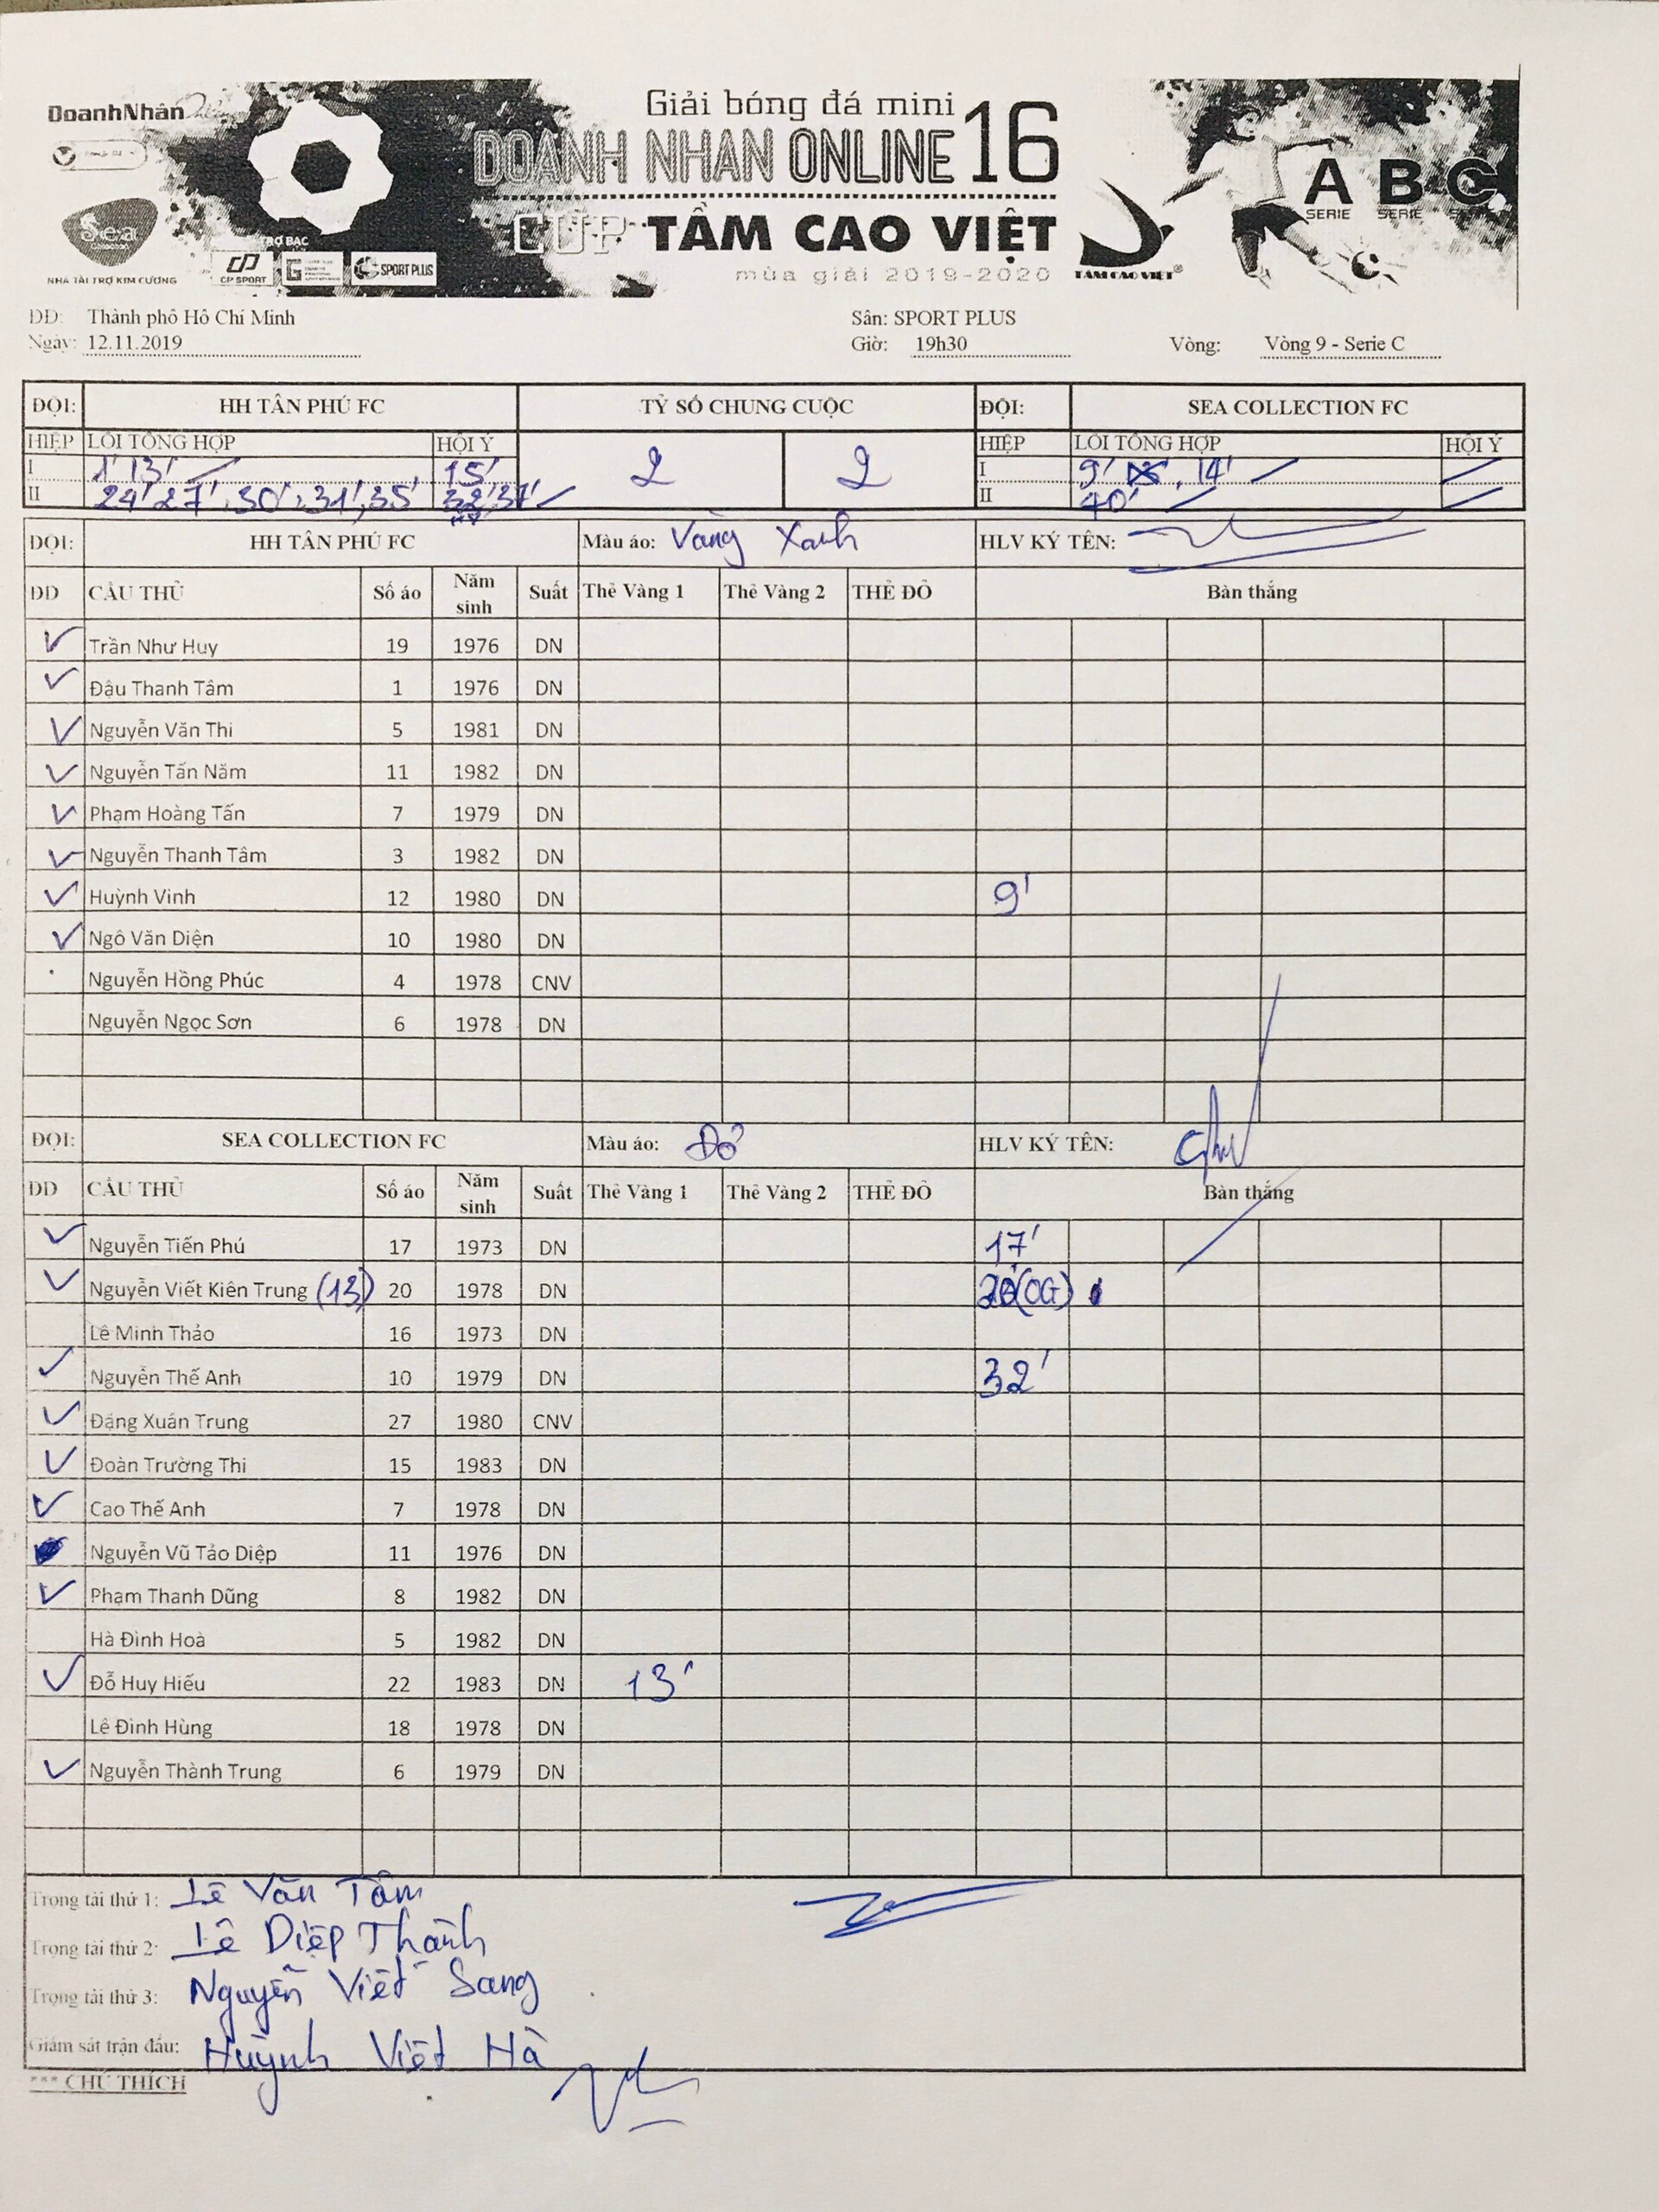 DoanhNhân
Giải bóng đá mini
DOANH NHÂN ONLINE 16
CÚP TẦM CAO VIỆT
mùa giải 2019-2020
Sea
Collection
NHÀ TÀI TRỢ KIM CƯƠNG
TRỢ BẠC
CP SPORT
SPORT PLUS
TẦM CAO VIỆT®
A B C
SERIE SERIE
ĐĐ: Thành phố Hồ Chí Minh Sân: SPORT PLUS
Ngày: 12.11.2019 Giờ: 19h30 Vòng: Vòng 9 - Serie C
ĐỘI: HH TÂN PHÚ FC TỶ SỐ CHUNG CUỘC ĐỘI: SEA COLLECTION FC
HIỆP LỖI TỔNG HỢP HỘI Ý 2 2 HIỆP LỖI TỔNG HỢP HỘI Ý
I 1' 13' 15' I 9' 14'
II 24' 27', 30', 31', 35' 32' 37' II 40'
ĐỘI: HH TÂN PHÚ FC Màu áo: Vàng Xanh HLV KÝ TÊN:
ĐD CẦU THỦ Số áo Năm sinh Suất Thẻ Vàng 1 Thẻ Vàng 2 THẺ ĐỎ Bàn thắng
Trần Như Huy 19 1976 DN
Đậu Thanh Tâm 1 1976 DN
Nguyễn Văn Thi 5 1981 DN
Nguyễn Tấn Năm 11 1982 DN
Phạm Hoàng Tấn 7 1979 DN
Nguyễn Thanh Tâm 3 1982 DN
Huỳnh Vinh 12 1980 DN 9'
Ngô Văn Diện 10 1980 DN
Nguyễn Hồng Phúc 4 1978 CNV
Nguyễn Ngọc Sơn 6 1978 DN
ĐỘI: SEA COLLECTION FC Màu áo: Đỏ HLV KÝ TÊN:
ĐD CẦU THỦ Số áo Năm sinh Suất Thẻ Vàng 1 Thẻ Vàng 2 THẺ ĐỎ Bàn thắng
Nguyễn Tiến Phú 17 1973 DN 17'
Nguyễn Viết Kiên Trung (13) 20 1978 DN 20(OG)
Lê Minh Thảo 16 1973 DN
Nguyễn Thế Anh 10 1979 DN 32'
Đặng Xuân Trung 27 1980 CNV
Đoàn Trường Thi 15 1983 DN
Cao Thế Anh 7 1978 DN
Nguyễn Vũ Tảo Diệp 11 1976 DN
Phạm Thanh Dũng 8 1982 DN
Hà Đình Hoà 5 1982 DN
Đỗ Huy Hiếu 22 1983 DN 13'
Lê Đình Hùng 18 1978 DN
Nguyễn Thành Trung 6 1979 DN
Trọng tài thứ 1: Lê Văn Tâm
Trọng tài thứ 2: Lê Diệp Thành
Trọng tài thứ 3: Nguyễn Viết Sang
Giám sát trận đấu: Huỳnh Việt Hà
*** CHÚ THÍCH